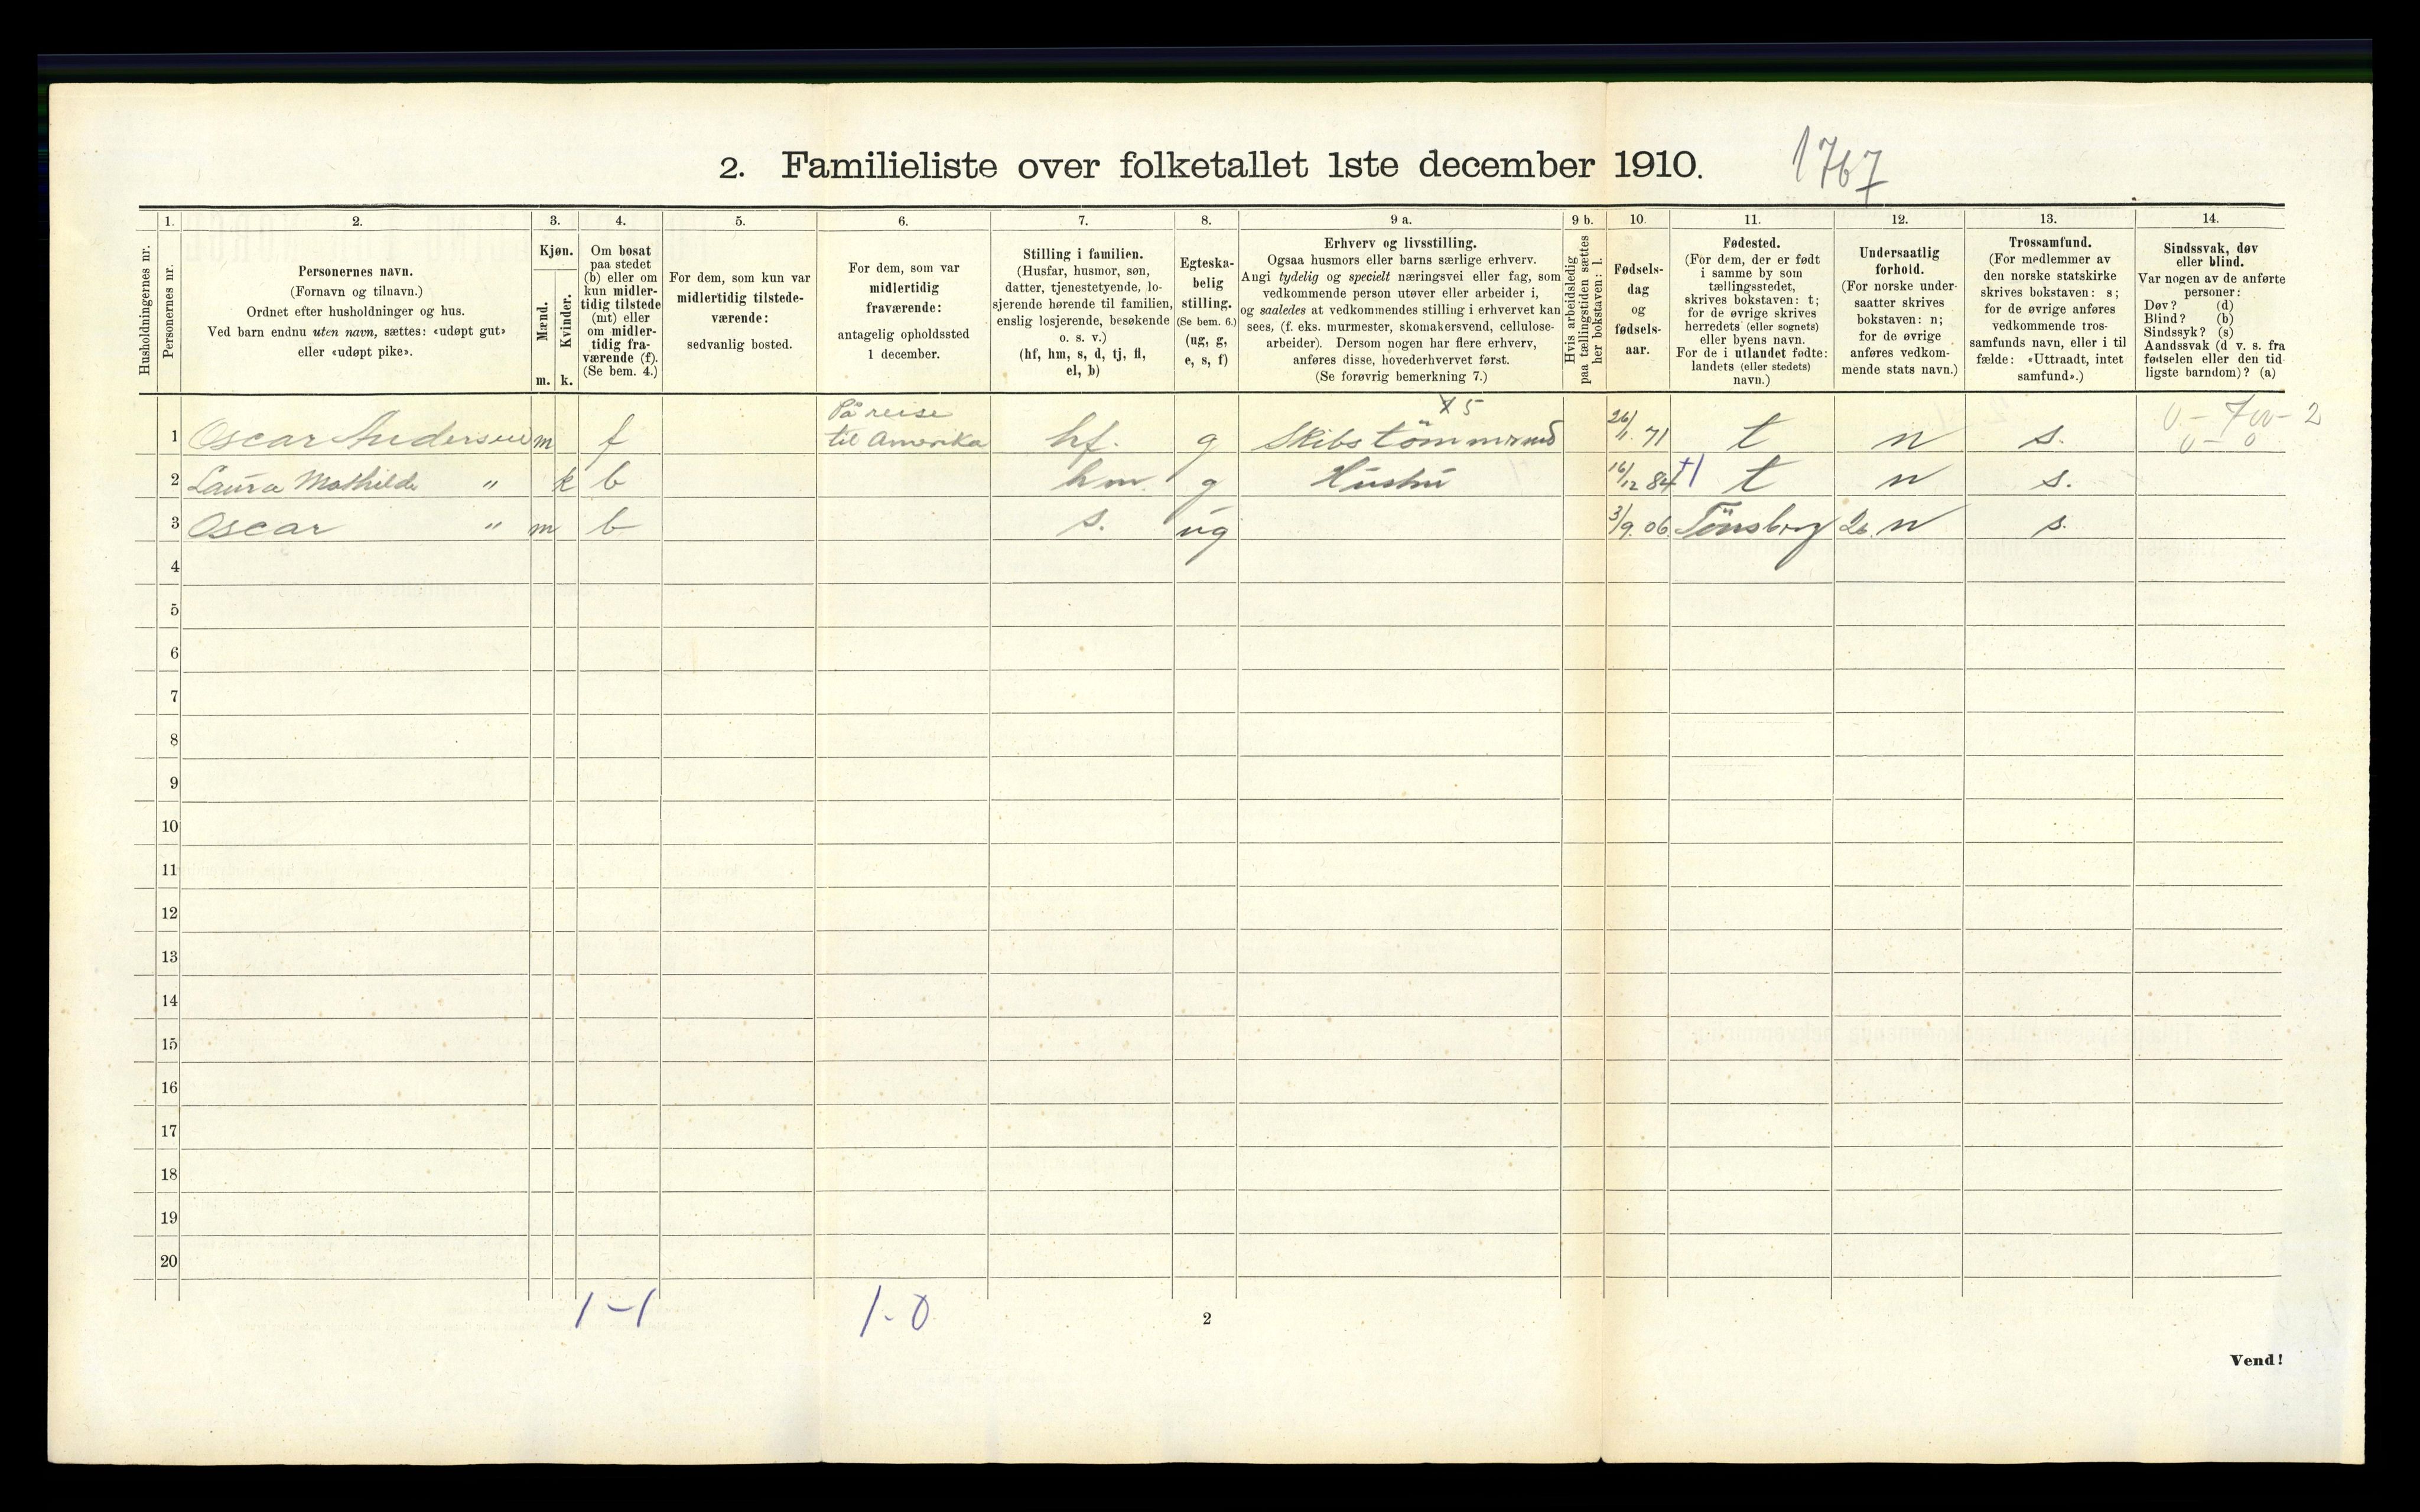 2. Familieliste over folketallet 1ste december 1910.
1767
Husholdningernes nr.
1.
Personernes nr.
2.
Personernes navn.
(Fornavn og tilnavn.)
Ordnet efter husholdninger og hus.
Ved barn endnu uten navn, sættes: «udøpt gut»
eller «udøpt pike».
3.
Kjøn.
Mænd.
Kvinder.
m. k.
4.
Om bosat
paa stedet
(b) eller om
kun midler-
tidig tilstede
(mt) eller
om midler-
tidig fra-
værende (f).
(Se bem. 4.)
5.
For dem, som kun var
midlertidig tilstede-
værende:
sedvanlig bosted.
6.
For dem, som var
midlertidig
fraværende:
antagelig opholdssted
1 december.
7.
Stilling i familien.
(Husfar, husmor, søn,
datter, tjenestetyende, lo-
sjerende hørende til familien,
enslig losjerende, besøkende
o. s. v.)
(hf, hm, s, d, tj, fl,
el, b)
8.
Egteska-
belig
stilling.
(Se bem. 6.)
(ug, g,
e, s, f)
9 a.
Erhverv og livsstilling.
Ogsaa husmors eller barns særlige erhverv.
Angi tydelig og specielt næringsvei eller fag, som
vedkommende person utøver eller arbeider i,
og saaledes at vedkommendes stilling i erhvervet kan
sees, (f. eks. murmester, skomakersvend, cellulose-
arbeider). Dersom nogen har flere erhverv,
anføres disse, hovederhvervet først.
(Se forøvrig bemerkning 7.)
9 b.
Hvis arbeidsledig
paa tællingstiden sættes
her bokstaven: l.
10.
Fødsels-
dag
og
fødsels-
aar.
11.
Fødested.
(For dem, der er født
i samme by som
tællingsstedet,
skrives bokstaven: t;
for de øvrige skrives
herredets (eller sognets)
eller byens navn.
For de i utlandet fødte:
landets (eller stedets)
navn.)
12.
Undersaatlig
forhold.
(For norske under-
saatter skrives
bokstaven: n;
for de øvrige
anføres vedkom-
mende stats navn.)
13.
Trossamfund.
(For medlemmer av
den norske statskirke
skrives bokstaven: s;
for de øvrige anføres
vedkommende tros-
samfunds navn, eller i til-
fælde: «Uttraadt, intet
samfund».)
14.
Sindssvak, døv
eller blind.
Var nogen av de anførte
personer:
Døv? (d)
Blind? (b)
Sindssyk? (s)
Aandssvak (d v. s. fra
fødselen eller den tid-
ligste barndom)? (a)
På reise
1 Oscar Andersen m f til Amerika hf. g Skibstömmrmd 26/11. 71 t n s.
2 Laura Mathilde " k b hm. g Hustru 16/12 84 t n s.
3 Oscar " m b s. ug 3/9. 06. Tönsberg n s.
4
5
6
7
8
9
10
11
12
13
14
15
16
17
18
19
20
1-1 1-0
2
Vend!